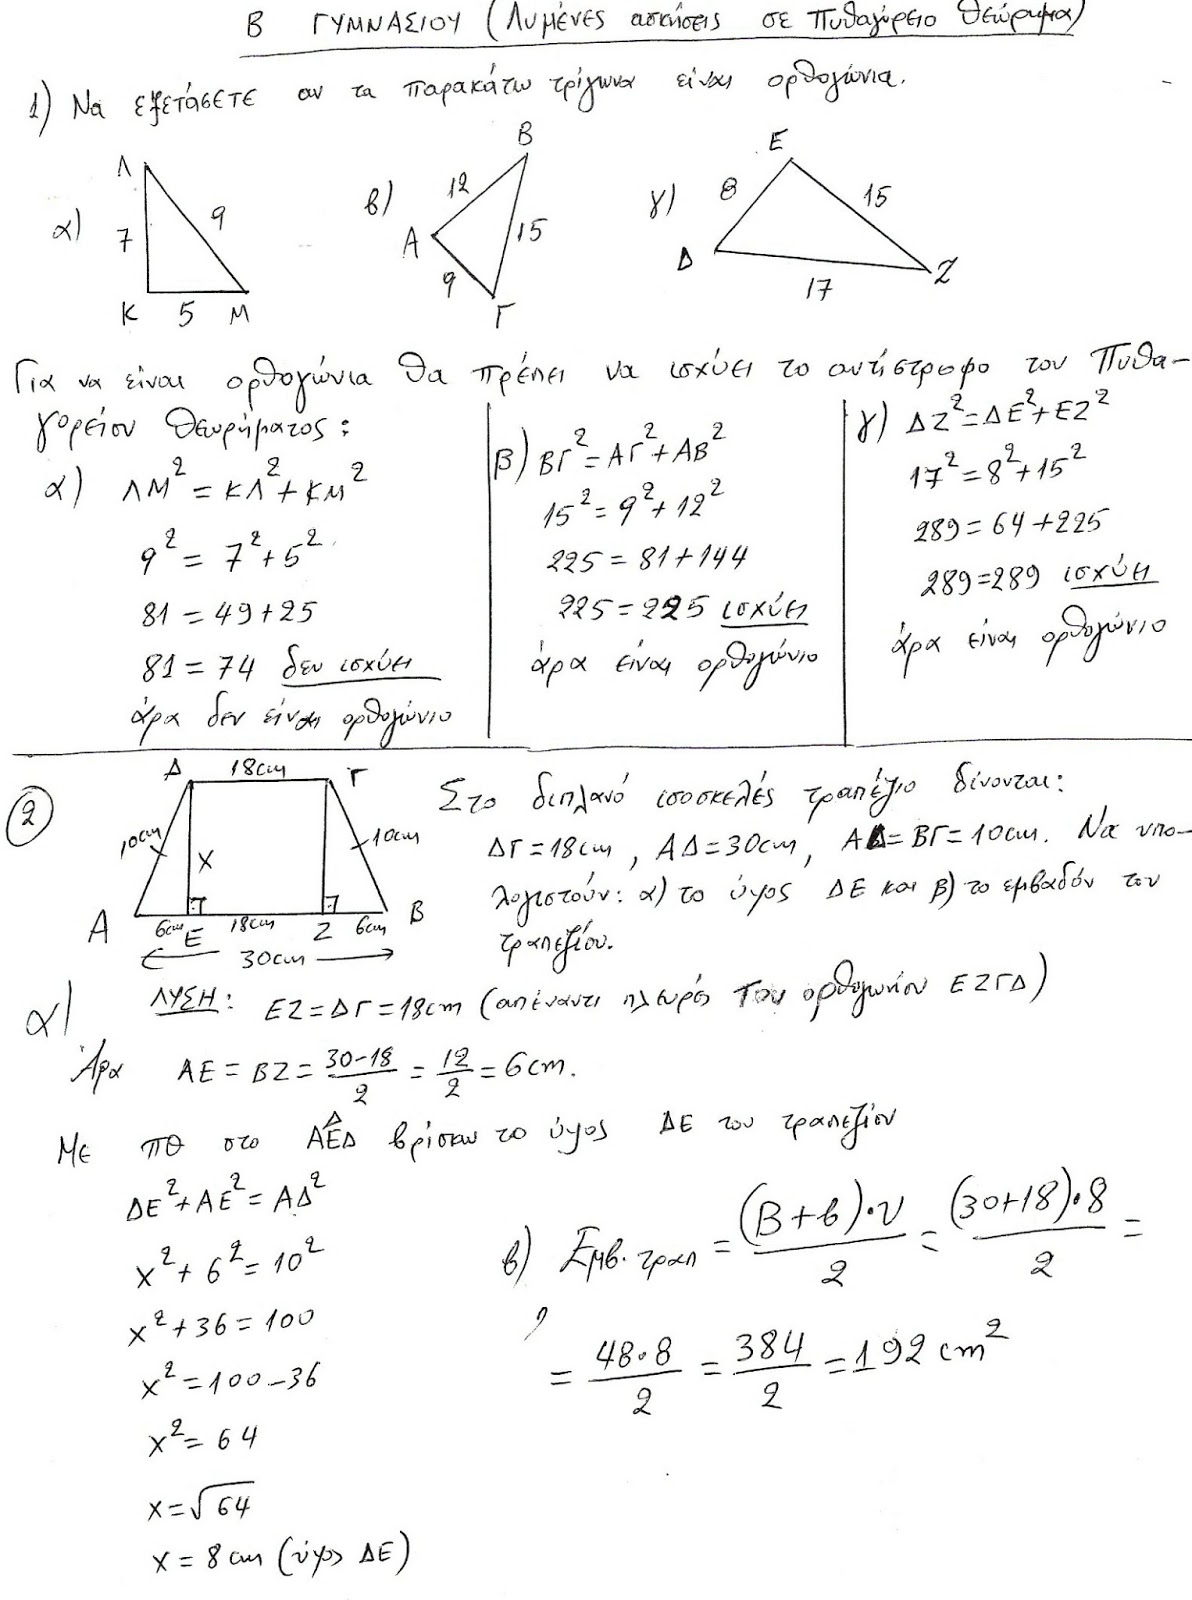 Β ΓΥΜΝΑΣΙΟΥ (Λυμένες ασκήσεις σε Πυθαγόρειο Θεώρημα)
1) Να εξετάσετε αν τα παρακάτω τρίγωνα είναι ορθογώνια.
α) Λ 7 9 Κ 5 Μ
β) Β 12 Α 15 9 Γ
γ) Ε 8 15 Δ 17 Ζ
Για να είναι ορθογώνια θα πρέπει να ισχύει το αντίστροφο του Πυθα-
γορείου Θεωρήματος:
α) ΛΜ² = ΚΛ² + ΚΜ²
9² = 7² + 5²
81 = 49 + 25
81 = 74 δεν ισχύει
άρα δεν είναι ορθογώνιο
β) ΒΓ² = ΑΓ² + ΑΒ²
15² = 9² + 12²
225 = 81 + 144
225 = 225 ισχύει
άρα είναι ορθογώνιο
γ) ΔΖ² = ΔΕ² + ΕΖ²
17² = 8² + 15²
289 = 64 + 225
289 = 289 ισχύει
άρα είναι ορθογώνιο
2
Δ 18cm Γ
10cm x 10cm
Α 6cm Ε 18cm Ζ 6cm Β
30cm
Στο διπλανό ισοσκελές τραπέζιο δίνονται:
ΔΓ = 18cm, ΑΔ = 30cm, ΑΔ = ΒΓ = 10cm. Να υπο-
λογιστούν: α) το ύψος ΔΕ και β) το εμβαδόν του
τραπεζίου.
α) ΛΥΣΗ: ΕΖ = ΔΓ = 18cm (απέναντι πλευρές του ορθογωνίου ΕΖΓΔ)
Άρα ΑΕ = ΒΖ = (30-18)/2 = 12/2 = 6cm.
Με ΠΘ στο ΑΕΔ βρίσκω το ύψος ΔΕ του τραπεζίου
ΔΕ² + ΑΕ² = ΑΔ²
x² + 6² = 10²
x² + 36 = 100
x² = 100 - 36
x² = 64
x = √64
x = 8cm (ύψος ΔΕ)
β) Εμβ. τραπ = (Β+β)·υ/2 = (30+18)·8/2 =
= 48·8/2 = 384/2 = 192 cm²